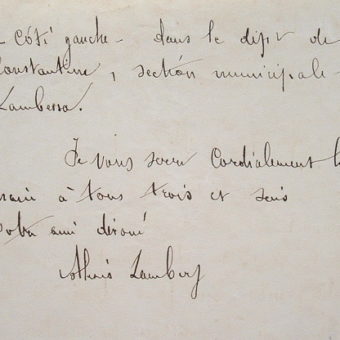 côté gauche - dans le dépt de
Constantine, section municipale
Lambessa.
Je vous serre cordialement la
main à tous trois et suis
votre ami dévoué
Alexis Lambert